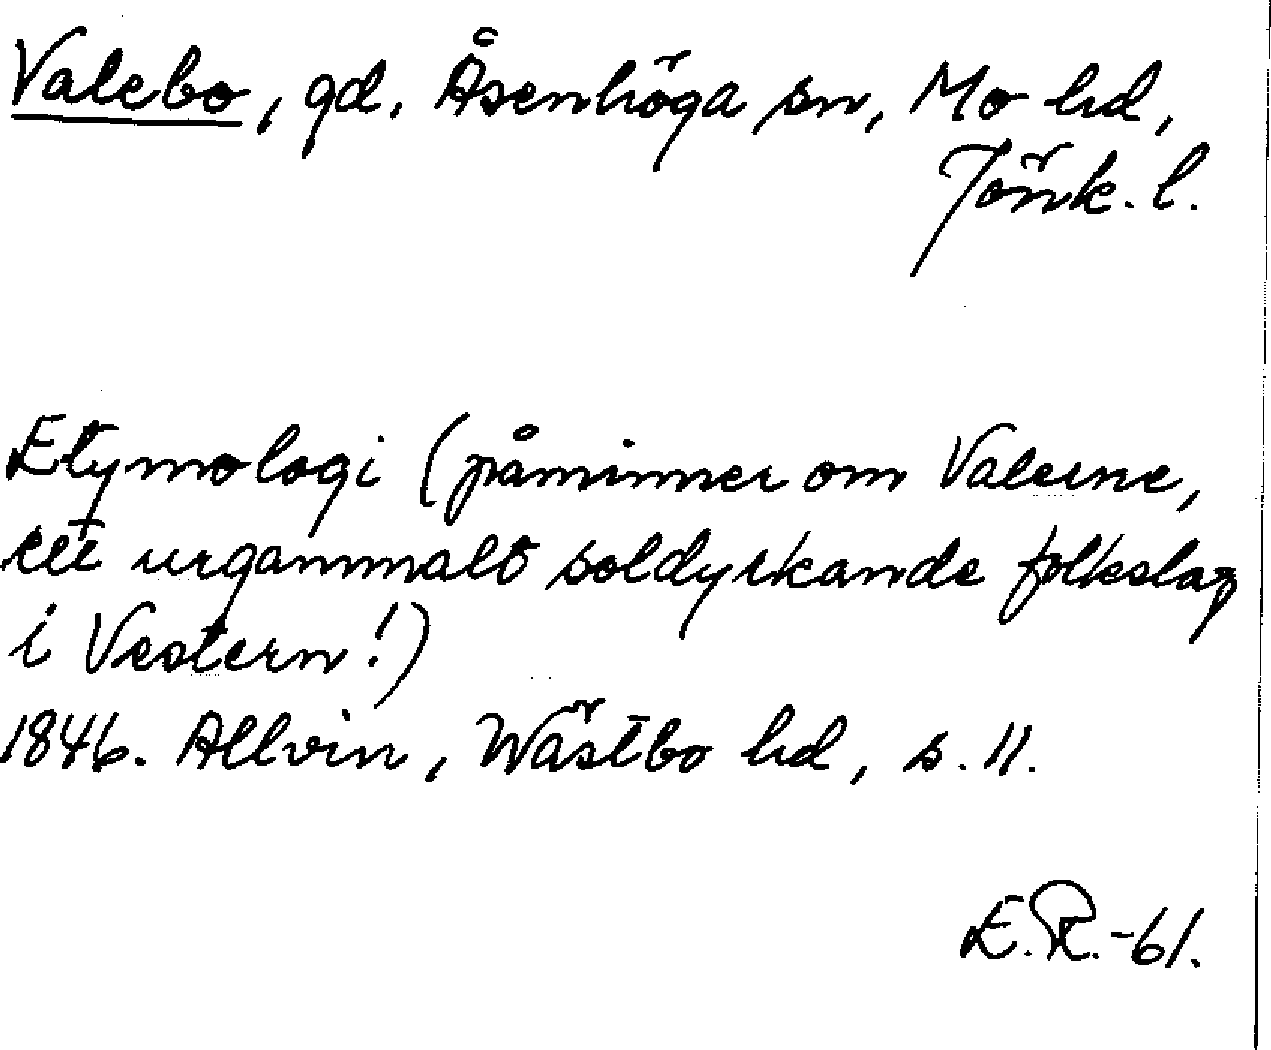 Valebo, gd. Åsenhöga sn, Mo hd,
Jönk. l.
Etymologi (påminner om Valerne,
ett urgammalt soldyrkande folkslag
i Vestern!)
1846. Allvin, Wästbo hd, s. 11.
E.R.-61.